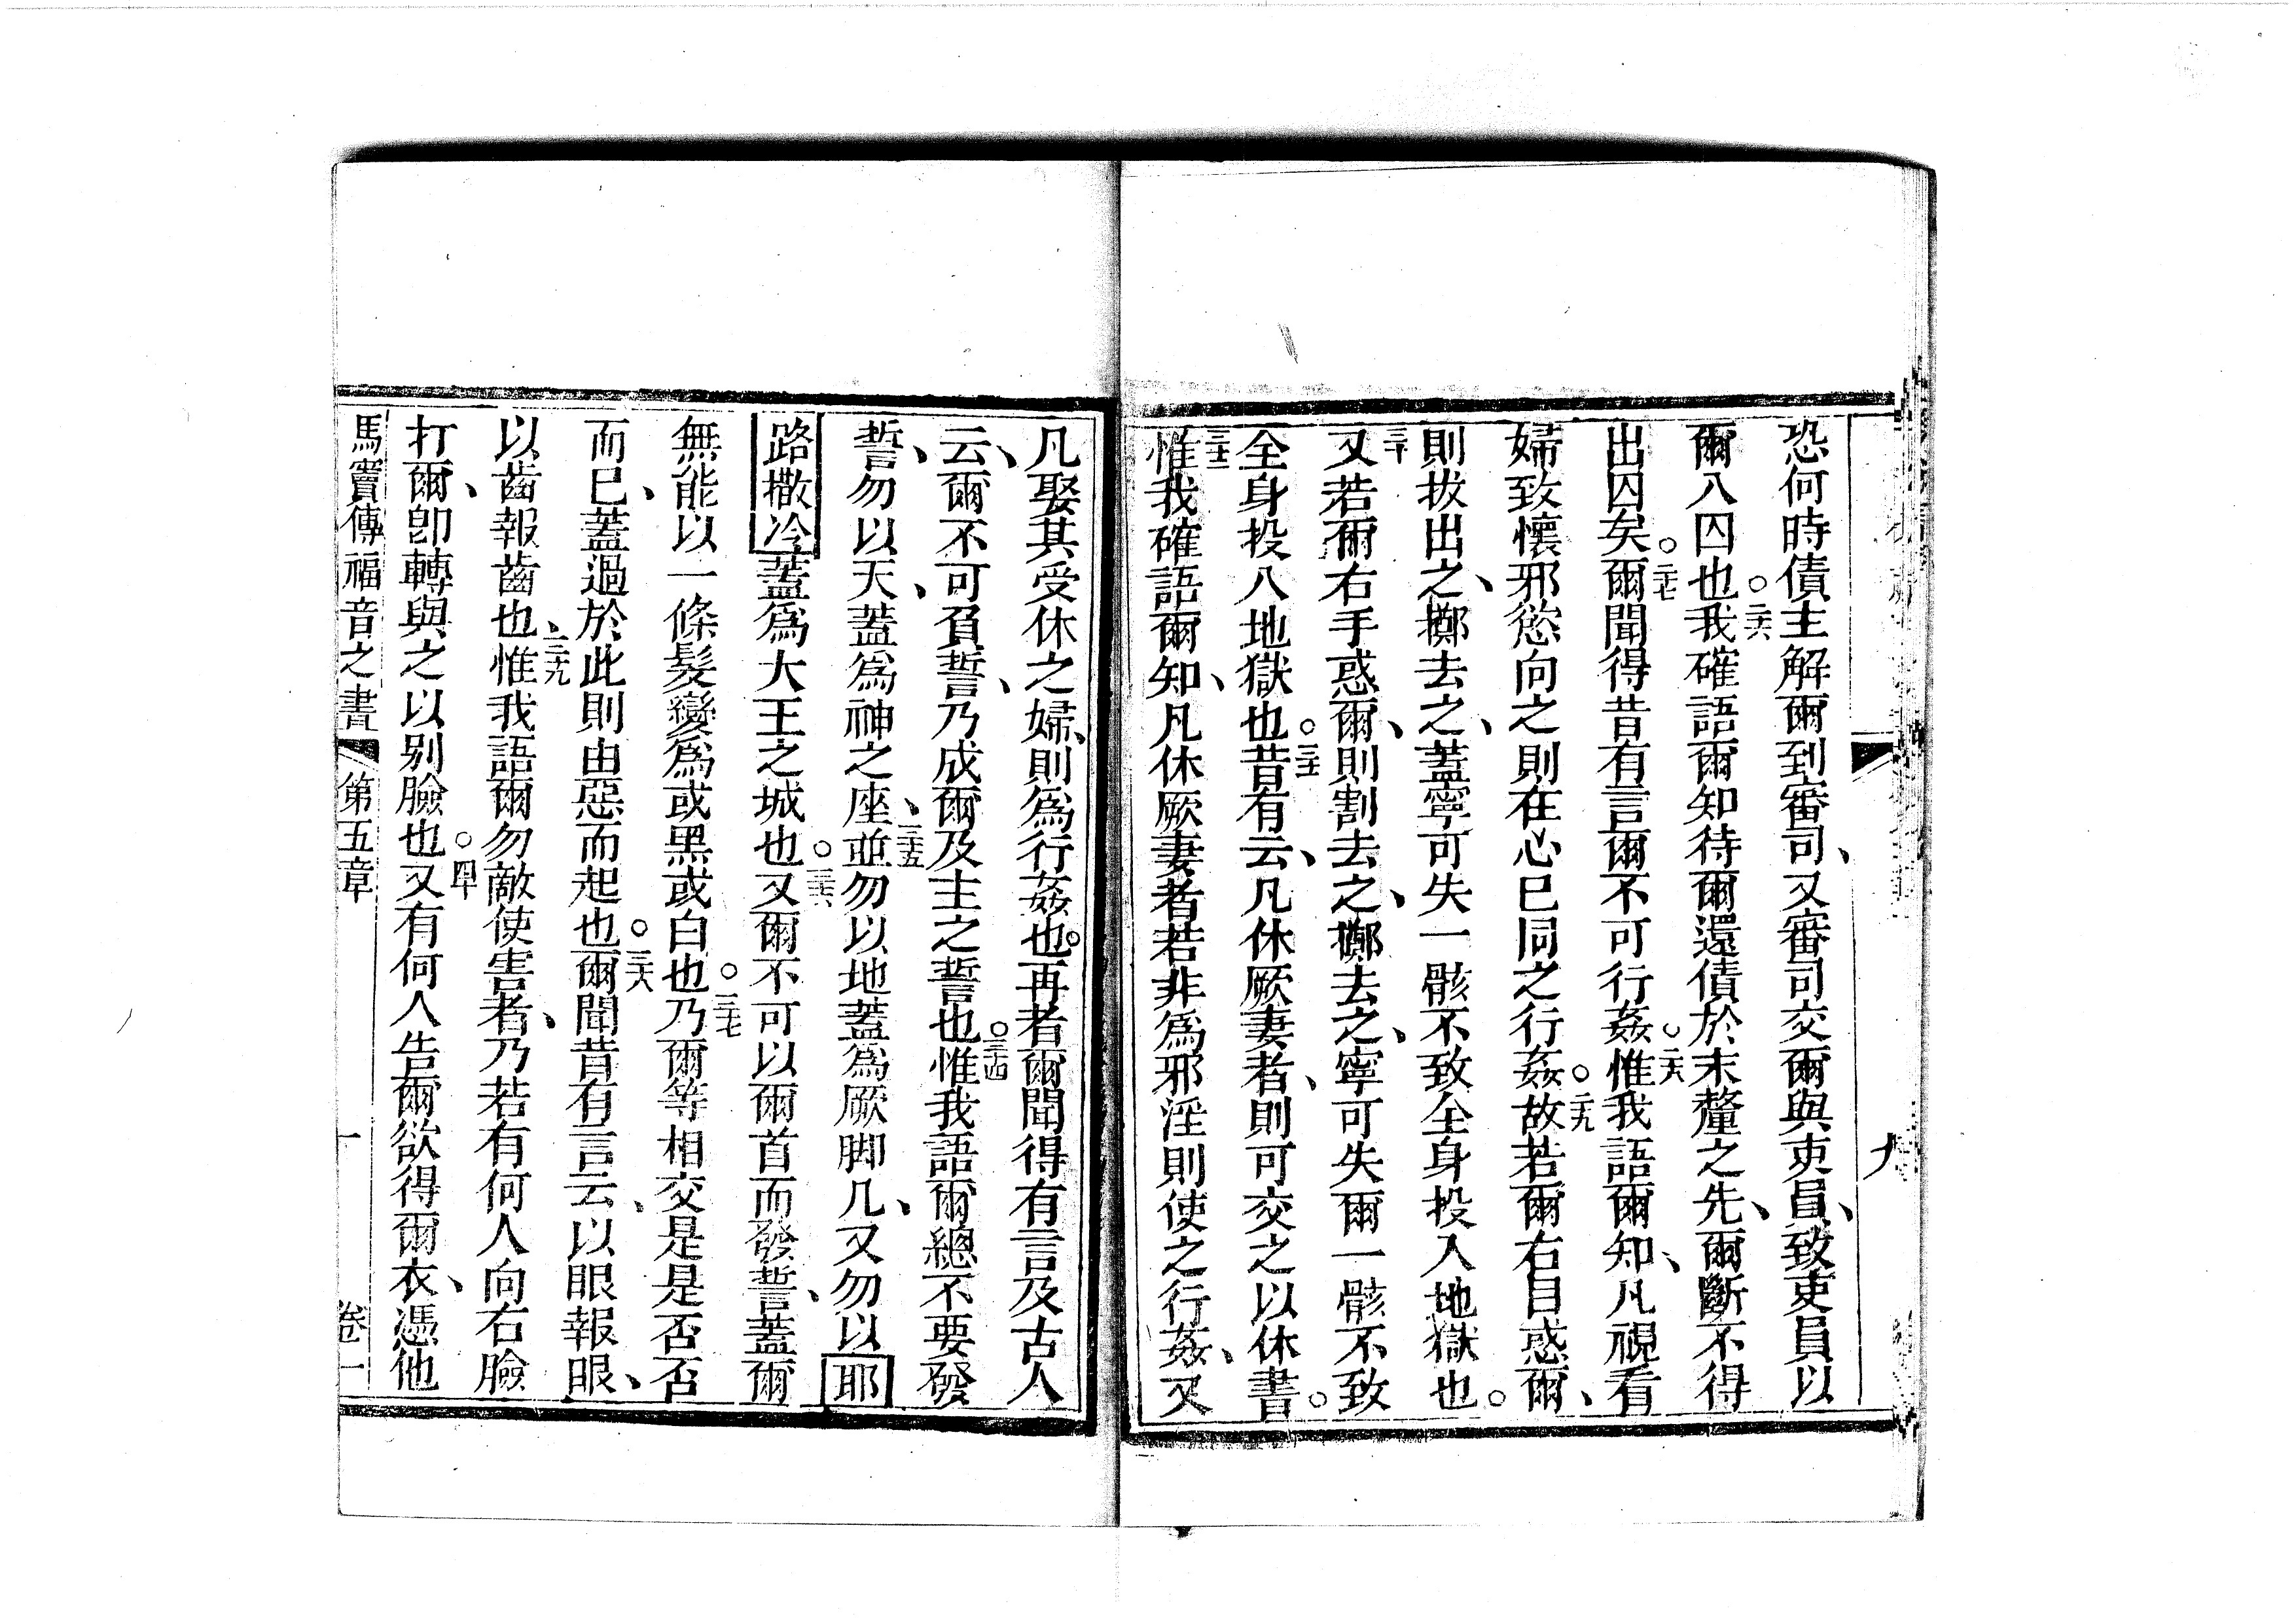 九
恐何時債主解爾到審司、又審司交爾與吏員、致吏員以
爾入囚也。二六我確語爾知待爾還債於末釐之先、爾斷不得
出囚矣。二七爾聞得昔有言爾不可行姦。二八惟我語爾知、凡視看
婦致懷邪慾向之則在心已同之行姦。二九故若爾右目惑爾、
則拔出之、擲去之、蓋寧可失一骸不致全身投入地獄也。
三十又若爾右手惑爾、則割去之、擲去之、寧可失爾一骸不致
全身投入地獄也。三一昔有云、凡休厥妻者、則可交之以休書。
三二惟我確語爾知、凡休厥妻者若非為邪淫則使之行姦、又
凡娶其受休之婦、則為行姦也。再者爾聞得有言及古人
云、爾不可負誓、乃成爾及主之誓也。三四惟我語爾總不要發
誓、勿以天、蓋為神之座、三五並勿以地蓋為厥脚几、又勿以耶
路撒冷蓋為大王之城也。三六又爾不可以爾首而發誓、蓋爾
無能以一條髮變為或黑或白也。三七乃爾等相交是是否否
而已、蓋過於此則由惡而起也。三八爾聞昔有言云、以眼報眼、
以齒報齒也、三九惟我語爾勿敵使害者、乃若有何人向右臉
打爾、卽轉與之以别臉也。四十又有何人告爾欲得爾衣、憑他
馬竇傳福音之書 第五章 十 卷一